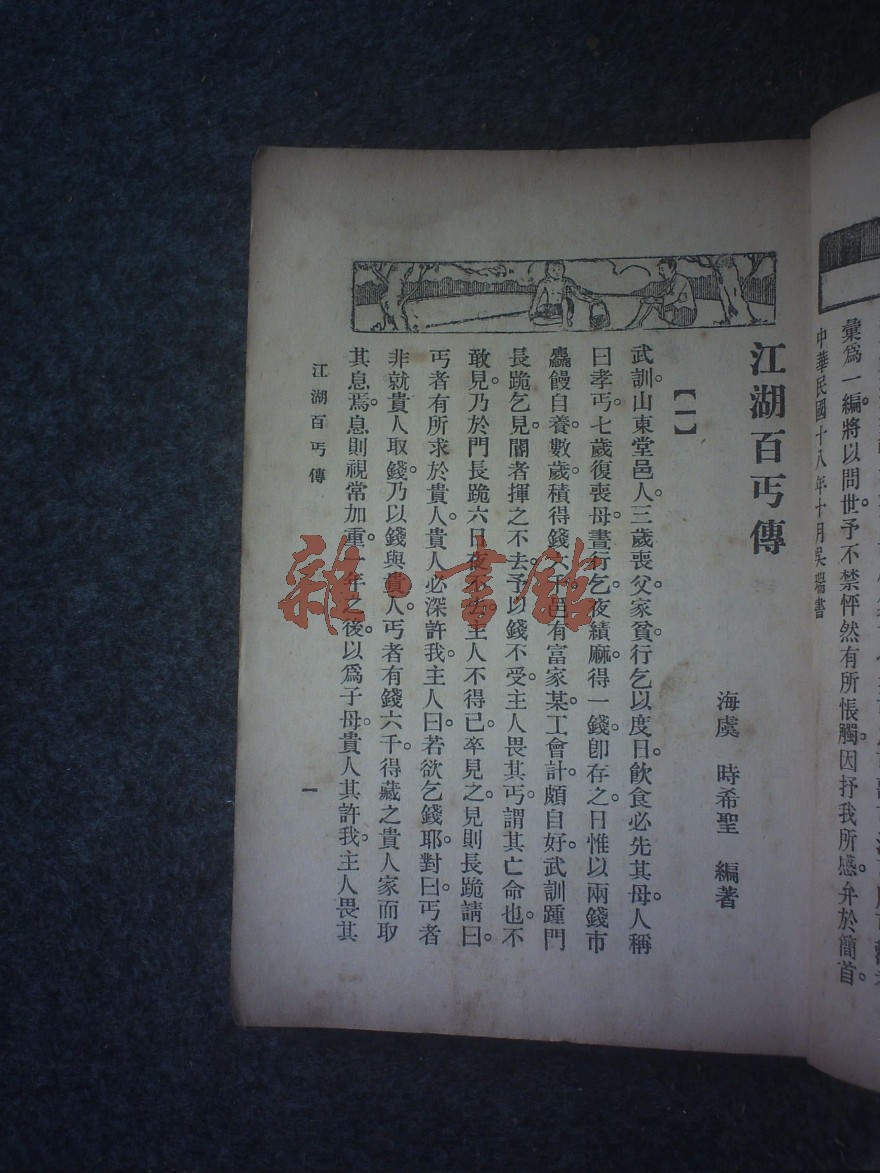 彙爲一編。將以問世。予不禁怦然有所悵觸。因抒我所感。弁於簡首。
中華民國十八年十月吳瑞書
江湖百丐傳
海虞 時希聖 編著
【一】
武訓。山東堂邑人。三歲喪父。家貧。行乞以度日。飲食必先其母。人稱
曰孝丐。七歲復喪母。晝行乞。夜績麻。得一錢。卽存之。日惟以兩錢市
麤饅自養。數歲積得錢六千。邑有富家某。工會計。頗自好。武訓踵門
長跪乞見。閽者揮之不去。予以錢不受。主人畏其丐。謂其亡命也。不
敢見。乃於門長跪六日夜不去。主人不得已。卒見之。見則長跪請曰。
丐者有所求於貴人。貴人必深許我。主人曰。若欲乞錢耶。對曰。丐者
非就貴人取錢。乃以錢與貴人。丐者有錢六千。得藏之貴人家而取
其息焉。息則視常加重。一年之後。以爲子母。貴人其許我。主人畏其
江湖百丐傳
一
雜·書館